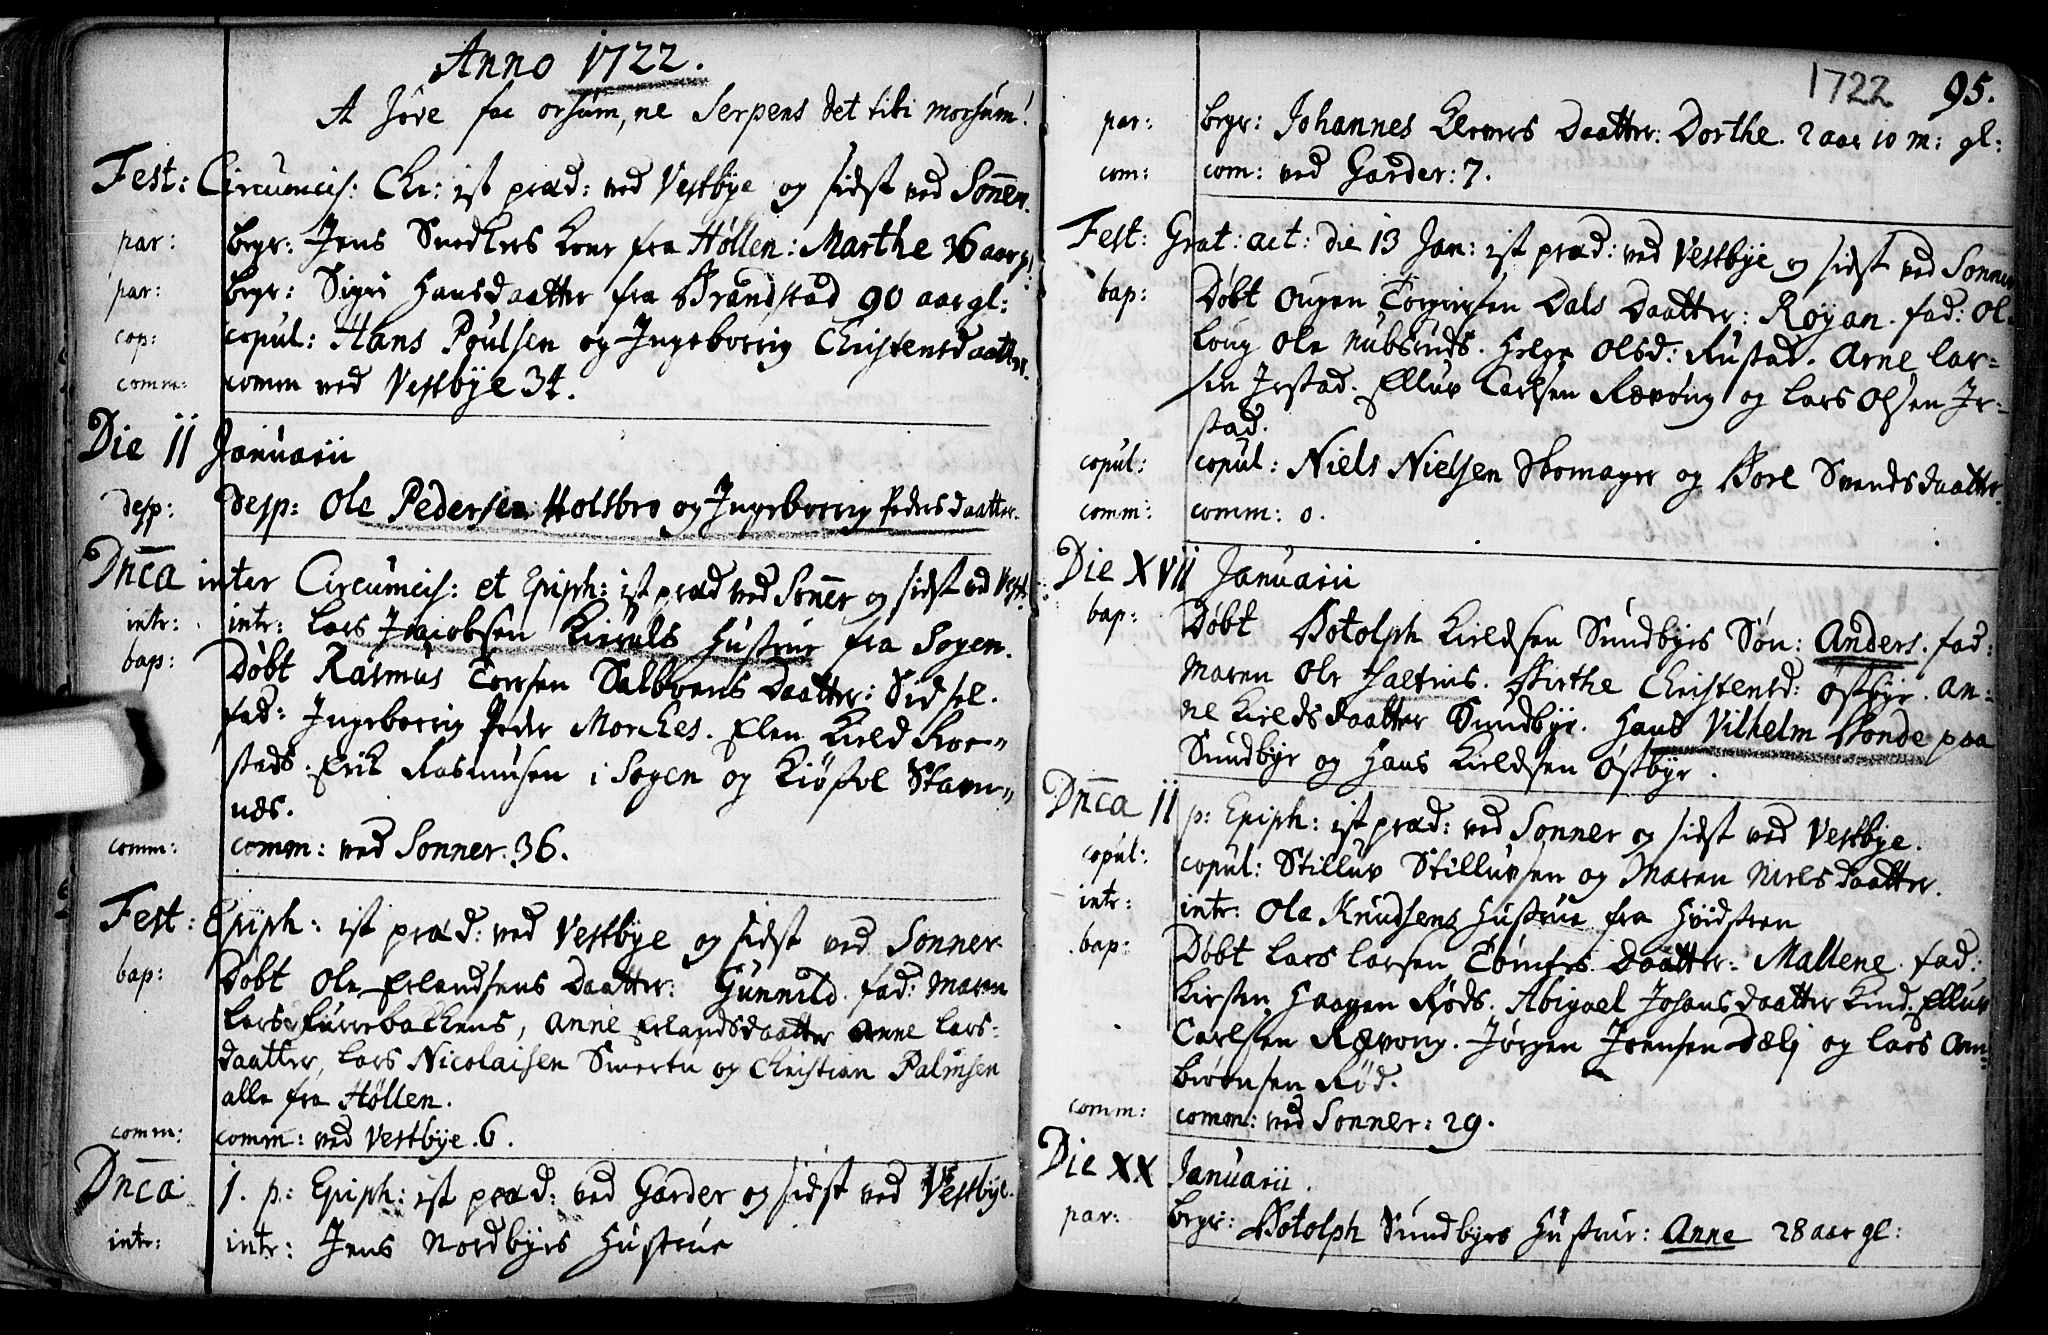 Anno 1722.
A Jove fac orsum, ne Serpens det tibi morsum!
Fest: Circumcis: Chr: ist præd: ved Vestbye og sidst ved Sonner.
par: begr: Jens Kone fra Høllen: Marthe 36 aar gl:
par: begr: Sigri Hansdaatter fra Brandstad 90 aar gl:
cop: copul: Hans Poulsen og Ingeborrig Christensdaatter.
comm: comm ved Vestbye 34.
Die 11 Januarii
desp: desp: Ole Pedersen Holsbro og Ingeborrig Pedersdaatter.
Dnca inter Circumcis: et Epiph: ist præd ved Sonner og sidst ved Vestb:
intr: intr: Lars Jacobsen Hustrue fra Sogen.
bap: Døbt Rasmus Torsen Daatter: Sidsel.
fad: Ingeborrig Peder Morches. Elen Kield Kor=
stads. Erik Rasmusen i Sogen og Kiøstol Stavn=
næs.
comm: comm: ved Sonner. 36.
Fest: Epiph: ist præd: ved Vestbye og sidst ved Sonner
bap: Døbt Ole Erlandsens Daatter: Gunnild. fad: Maren
Lars Furrebackens, Anne Erlandsdaatter Anne Lars=
daatter, Lars Nicolaisen og Christian Palmsen
alle fra Høllen.
comm: comm: ved Vestbye. 6.
Dnca 1. p: Epiph: ist præd: ved Garder og sidst ved Vestbye.
intr: intr: Jens Nordbyes Hustrue
1722 95.
par: begr: Johannes Daatter: Dorthe. 2 aar 10 m: gl:
com: com: ved Garder: 7.
Fest: Grat: act: die 13 Jan: ist præd: ved Vestbye og sidst ved Sonner
bap: Døbt Torgiersen Dals Daatter: Røyan. fad: Ol=
loug Ole Nubsruds. Helge Olsd: Rustad. Arne Lar=
sen Irstad. Elluv Carlsen Rævong og Lars Olsen Ir=
stad.
copul: copul: Niels Nielsen Skomager og Borl Svendsdaatter
comm: comm: 0.
Die XVII Januarii
bap: Døbt Botolph Kieldsen Sundbyes Søn: Anders. fad:
Maren Ole Birthe Christensd: Østbye. An=
ne Kieldsdaatter Sundbye. Hans Vilhelm Bonde paa
Sundbye og Hans Kieldsen Østbye.
Dnca 11 p: Epiph: ist præd: ved Sonner og sidst ved Vestbye.
copul: copul: Stilluv Stilluvsen og Maren Nielsdaatter.
intr: intr: Ole Knudsens Hustrue fra Hvidsteen
bap: Døbt Lars Larsen Daatter: Mallene. fad:
Kirsten Haagen Røds. Abigael Johansdaatter Kind. Elluv
Carlsen Rævong. Jørgen Joensen Dæli og Lars Am=
biørnsen Rød.
comm: comm: ved Sonner: 29.
Die XX Januarii.
par: begr: Botolph Sundbyes Hustrue: Anne 28 aar gl: